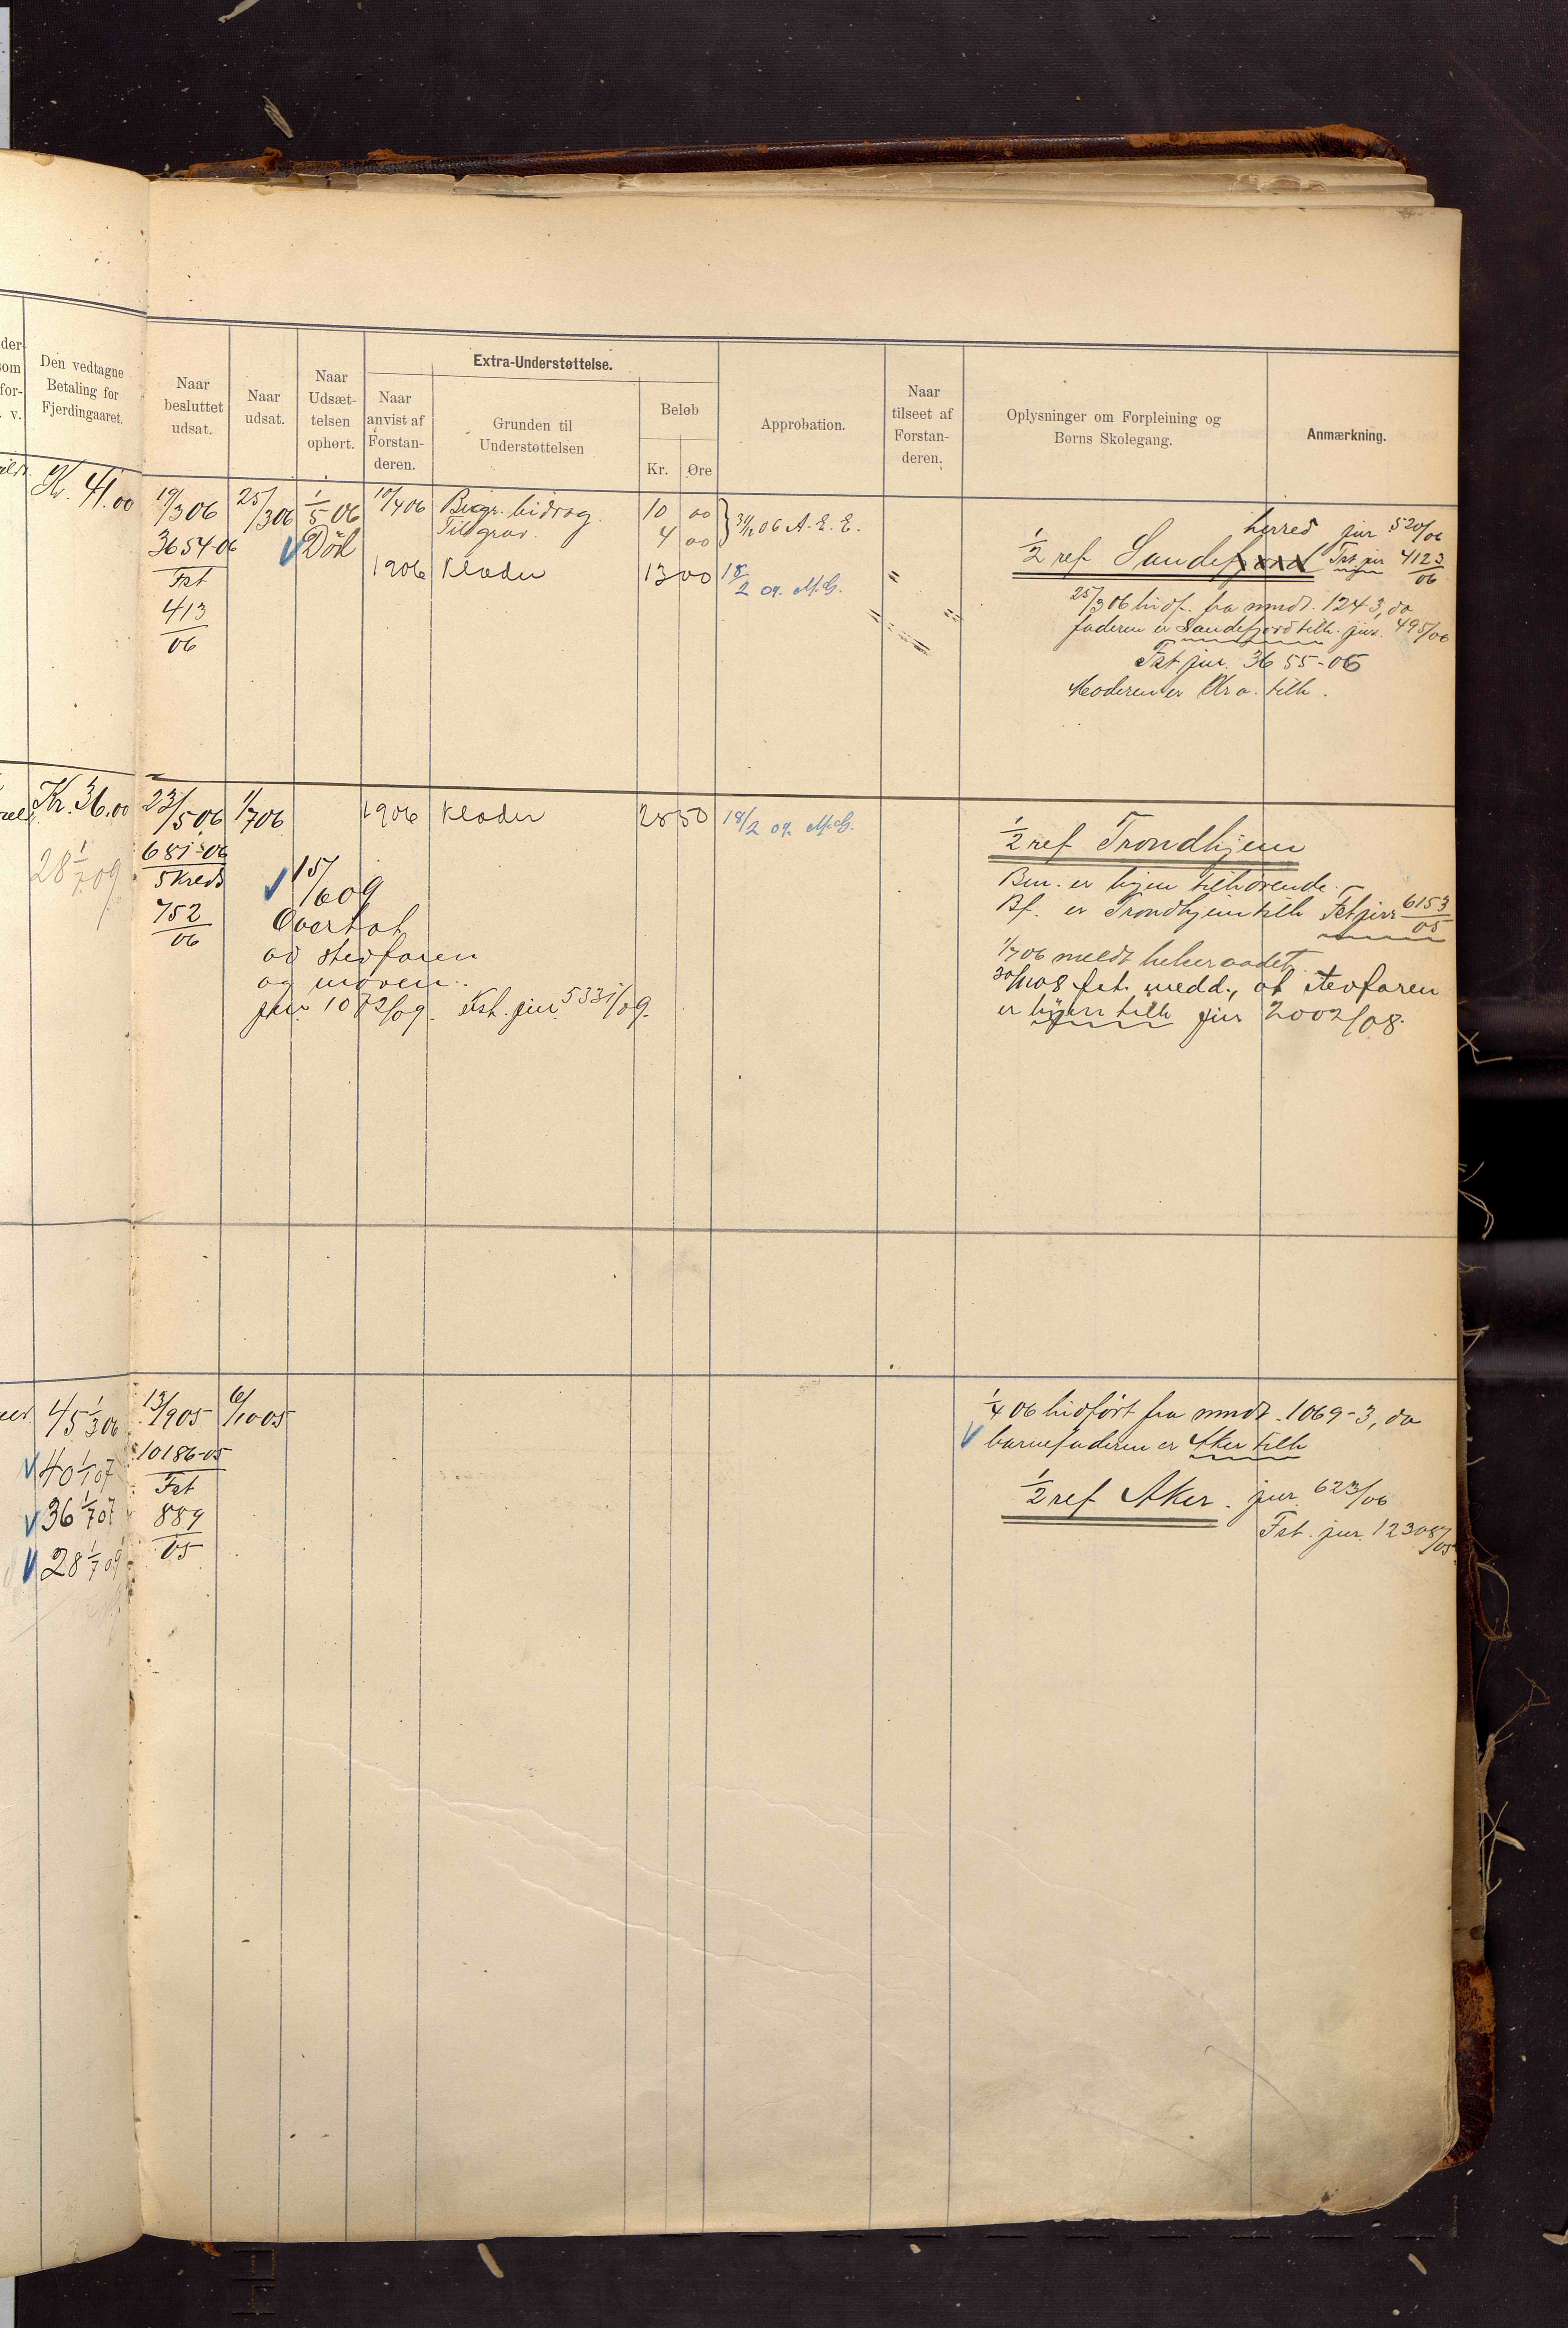 der-
som
for-
v.
Den vedtagne
Betaling for
Fjerdingaaret.
Naar
besluttet
udsat.
Naar
udsat.
Naar
Udsæt-
telsen
ophørt.
Extra-Understøttelse.
Naar
anvist af
Forstan-
deren.
Grunden til
Understøttelsen
Beløb
Kr.
Øre
Approbation.
Naar
tilseet af
Forstan-
deren.
Oplysninger om Forpleining og
Børns Skolegang.
Anmærkning.
Kr. 41.00
19/3 06
3654-06
Fst
413
06
25/3 06
1/5 06
Död
10/4 06
Begr. bidrag.
10 00
Till grav.
4 00
A. E. E.
1906
Klæder
13 00
18/2 07. M.G.
"
herred jur 520/06
1/2 ref Sandefjord Fst jur 4123/06
25/3 06 hidf. fra mmdt. 1243, da
faderen er Sandefjord tilh. jur. 495/06
Fst jur. 3655-06
Moderen er Kra. tilh.
Kr. 36.00
28 1/7 09
23/5 06
681-06
5 Kreds
752
06
1/7 06
1906
Klæder
28 50
18/2 07. M.G.
15/6 09
Overtat
av stedfaren
og moren.
jur. 1072/09. Fst. jur. 5331/09.
1/2 ref Trondhjem
Bm. er byen tilhörende.
Bf. er Trondhjem tilh Fst jur 6153/05
1/7 06 meldt helseraadet.
30/11 08 fst. medd., at stevfaren
er byen tilh jur 2002/08.
45 1/3 06
40 1/1 07
36 1/7 07
28 1/7 09
13/9 05
10186-05
Fst
889
05
6/10 05
1/4 06 hidført fra mmdt. 1069-3, da
barnefaderen er Aker tilh
1/2 ref Aker. jur. 623/06
Fst. jur. 12308/05